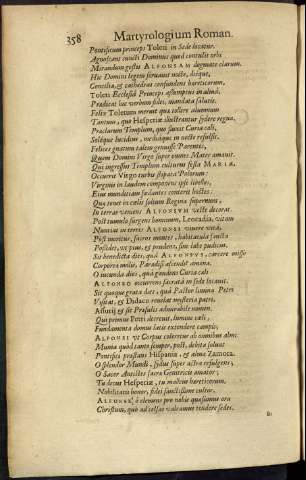 358 Martyrologium Roman.
Pontificum princeps Toleti in Sede locatur.
Agnoscant cuncti Dominus quod contulit orbi
Mirandum gestis ALFONSVM dogmate clarum.
Hic Domini legem servauit nocte, dieque,
Gentilia, et cathedras confundens hæreticorum.
Toleti Ecclesiæ Princeps assumptus in almâ
Prædicat hic verbum fidei, mandata salutis.
Felix Toletum meruit quæ tollere alumnum
Tantum, quo Hesperiæ illustrentur sydere regna.
Præclarum Templum, quo fauet Curia cæli,
Solque lucidior, mediaque in nocte refulsit.
Felices gnatum talem genuisse Parentes,
Quem Domini Virgo super omnes Mater amauit.
Qui ingressus Templum culturus festa MARIÆ,
Occurrit Virgo turba stipata Polorum:
Virginis in laudem componens ipse libellos,
Eius munditiem fœdantes conterit hostes.
Quæ tenet in cælis solium Regina supernum,
In terras veniens ALFONSVM veste decorat.
Post tumulo surgens hominum, Leocadia, vitam
Nuntiat in terris ALFONSI viuere
Post moritur, sacros montes, habitacula sancta
Possidet, vt pius, et prudens, sine labe pudicus.
Sit benedicta dies, quâ ALFONSVS, carcere misso
Corporis exilii, Paradisi ascendit amœna.
O iucunda dies, quâ gaudens Curia cæli
ALFONSO occurrens sacratâ in sede locauit.
Sit quoque grata dies, quâ Pastor limina Petri
Visitat, et Didaco reuelat mysteria patris.
Assurgit et sit Præsulis admirabile nomen.
Qui primus Petri decreuit, lumine cæli,
Fundamenta domus latis extendere campis,
ALFONSI vt Corpus coleretur ab omnibus almi
Munia quòd tanto semper, post, debita soluat
Pontifici præstans Hispania, et alme Zamora.
O splendor Mundi, sydus super astra refulgens,
O Sacer Antistes sacræ Genitricis amator,
Tu decus Hesperiæ, tu malleus hæreticorum,
Nobilitatis honor, fidei sanctissime cultor.
ALFONSE, ô clemens pro nobis quæsumus ora
Christum, quò ad celsas valeamus tendere sedes.